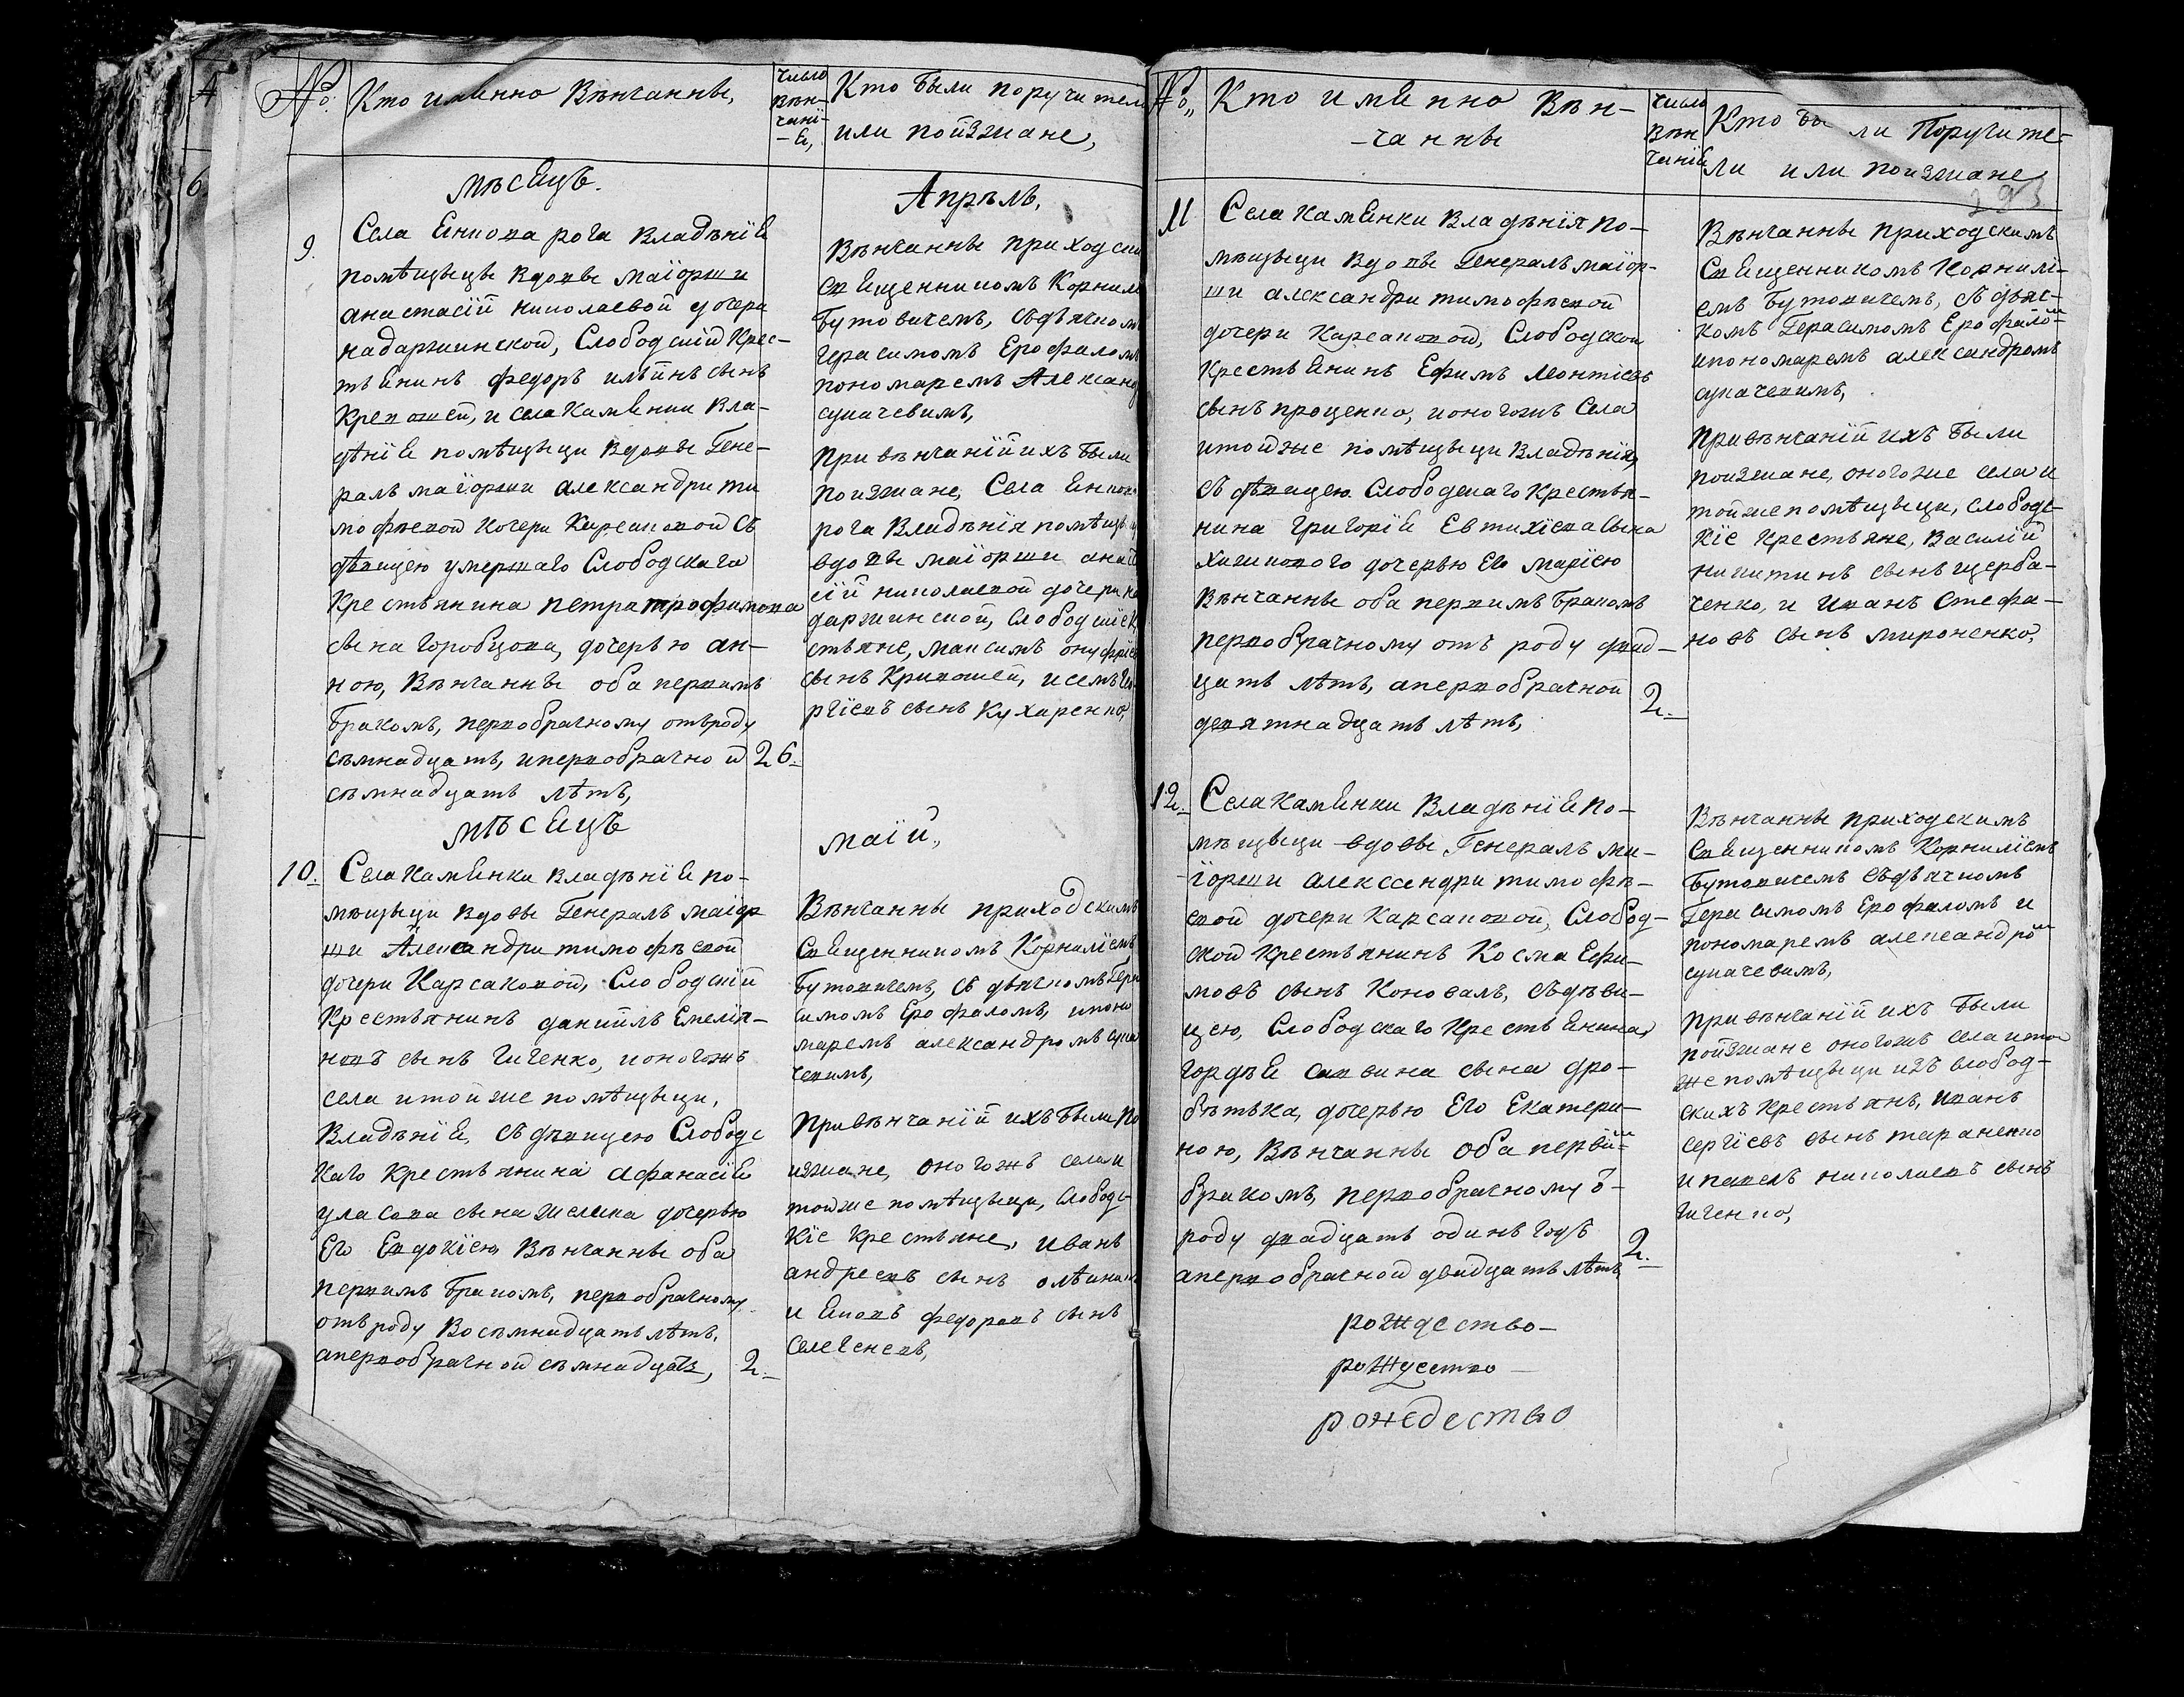 №. Кто имѣнно Вѣнчанны,
число
Вѣн-
чані-
-Е,
Кто были поручители
или поизжане,
мѣсЕцъ.
Апрѣль,
9.
Села Еннова рога ВладѣніЕ
помѣщицы Вдовы маіорши
анастасій николаевой дочери
надаржинской, Слободскій Крес-
тьЕнинъ федоръ ильинъ сынъ
Кривошей, и села КамЕнки Вла-
дѣніЕ помѣщыци Вдовы Гене-
ралъ маіорши александри ти
мофѣевой дочери Карсаковой Съ
дѣвицею умершаго Слободскаго
Крестьянина петра трофимова
сына горобцова, дочерью ан-
ною, Вѣнчанны оба первимъ
бракомъ, первобрачному отъ роду
съмнадцать, и первобрачной
съмнадцать лѣтъ,
26.
Вѣнчанны приходски
свЕщенникомъ Корнил
бутовичемъ, съдьячком
герасимомъ Ерофаломъ
пономаремъ Александ
сукачевимъ,
при вѣнчаній ихъ были
поизжане, Села Еннов
рога Владѣнія помѣщы
вдовы маіорши анаст
сій николаевой дочери на
даржинской, слободскіе к
стьяне, максимъ онуфріев
сынъ Кривошей, и семъ гео
ргіевъ сынъ Кухаренко,
мѣсЕцъ
маій,
10.
Села КамЕнки ВладѣніЕ по-
мѣщыци Вдовы Генералъ маіор
ши Александри тимофѣевой
дочери Карсаковой, Слободскій
Крестьянинъ даніилъ Емелія-
новъ сынъ гиченко, и оногожъ
села и тойже помѣщыци,
ВладѣніЕ, съ дѣвицею Слободс
каго крестьянина афанасіЕ
уласова сына желика дочерью
Его Евдокіею Вѣнчанны оба
первимъ бракомъ, первобрачному
отъ роду Восѣмнадцать лѣтъ,
а первобрачной съмнадцать,
2.
Вѣнчанны приходскимъ
СвЕщенникомъ Корниліемъ
бутовичемъ, съ дьячкомъ Гера
симомъ Ерофаломъ, и поно
маремъ александромъ сука
чевимъ,
При вѣнчаній ихъ были по
изжане, оногожъ села и
тойже помѣщыци, слободс
кіе крестьяне, иванъ
андреевъ сынъ
и Еновъ федоровъ сынъ
селеченевъ,
№„ Кто имЕнно Вѣн-
-чанны
число
вѣн
чаніЕ
Кто были Поручите-
ли или поизжане
293
11
Села камЕнки Владѣнія по-
мѣщыци Вдовы Генералъ маіор-
ши александри тимофѣевой
дочери Карсаковой, Слободской
крестьЕнинъ Ефимъ леонтіевъ
сынъ проценко, и оногожъ Села
и тойже помѣщыци Владѣнія,
съ дѣвицею Слободскаго крестья-
нина григоріЕ Евтихіева сына
дочерью Его маріею
Вѣнчанны оба первимъ бракомъ
первобрачному отъ роду двад-
цать лѣтъ, а первобрачной
девятнадцать лѣтъ,
2.
Вѣнчанны приходскимъ
СвЕщенникомъ Корнилі-
емъ бутовичемъ, съ дьяч-
комъ Герасимомъ Ерофало-м
и пономаремъ александромъ
сукачевимъ,
При вѣнчаній ихъ были
поизжане, оногоже села и
тойже помѣщыци, слободс-
кіе крестьяне, Василій
никитинъ сынъ щерба-
ченко, и иванъ стефа-
новъ сынъ мироненко,
12.
Села КамЕнки ВладѣніЕ по-
мѣщыци вдовы Генералъ ма-
іорши александри тимофѣ-
евой дочери Карсаковой, Слобод-
ской крестьянинъ Косма Ефи-
мовъ сынъ Коновалъ, съ дѣви-
цею, Слободскаго крестьЕнина
гордѣЕ саввина сына дро-
бътька, дочерью Его Екатери-
ною, Вѣнчанны оба первим
бракомъ, первобрачному ѿ-
роду двадцать одинъ годъ
а первобрачной двадцать лѣтъ
2.
Вѣнчанны приходскимъ
СвЕщенникомъ Корниліемъ
бутовичемъ съдьячкомъ
Герасимомъ Ерофаломъ и
пономаремъ александром
сукачевимъ,
При вѣнчаній ихъ были
поизжане оногожъ села и той
же помѣщыци изъ слобод-
скихъ крестьянъ, иванъ
сергіевъ сынъ тараненко
и павелъ николаевъ сынъ
гиченко,
рождество-
рождество-
рождество